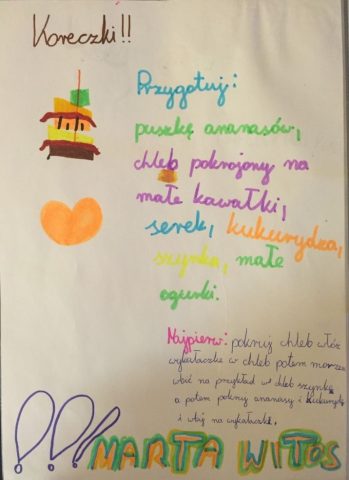 Koreczki!!
Przygotuj:
puszkę ananasów,
chleb pokrojony na
małe kawałki,
serek, kukurydza,
szynka, małe
ogurki.
Najpierw: pokruj chleb włóż
wykałaczke w chleb potem
wbić na przykład w chleb szynkę
a potem pokruj ananasy i kukurydzę
i wbij na wykałaczkę.
MARTA WITOS